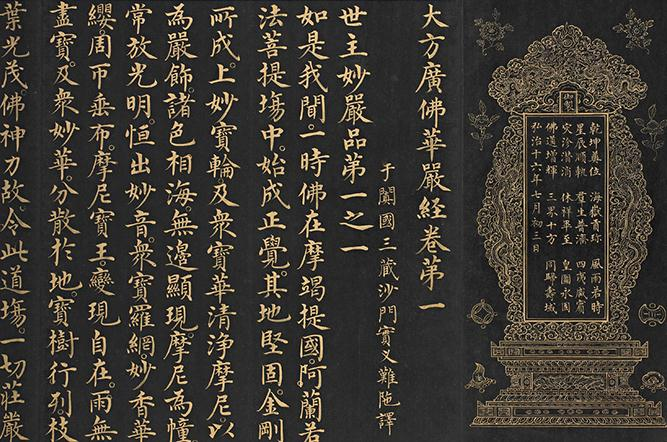 御製
乾坤奠位 海嶽貢珎 風雨若時
星辰順軌 羣生普濟 四夷咸賓
災沴潛消 休祥畢至 皇圖永固
佛道增輝 三界十方 同躋壽域
弘治十六年七月初二日
大方廣佛華嚴經卷苐一
于闐國三藏沙門實叉難陁譯
世主妙嚴品苐一之一
如是我聞。一時佛在摩竭提國。阿蘭若
法菩提塲中。始成正覺。其地堅固。金剛
所成。上妙寶輪及衆寶華清淨摩尼以
為嚴飾。諸色相海無邊顯現。摩尼為幢
常放光明。恒出妙音。衆寶羅網。妙香華
纓。周帀垂布。摩尼寶王。變現自在。雨無
盡寶。及衆妙華。分散於地。寶樹行列。枝
葉光茂。佛神力故。令此道塲。一切莊嚴